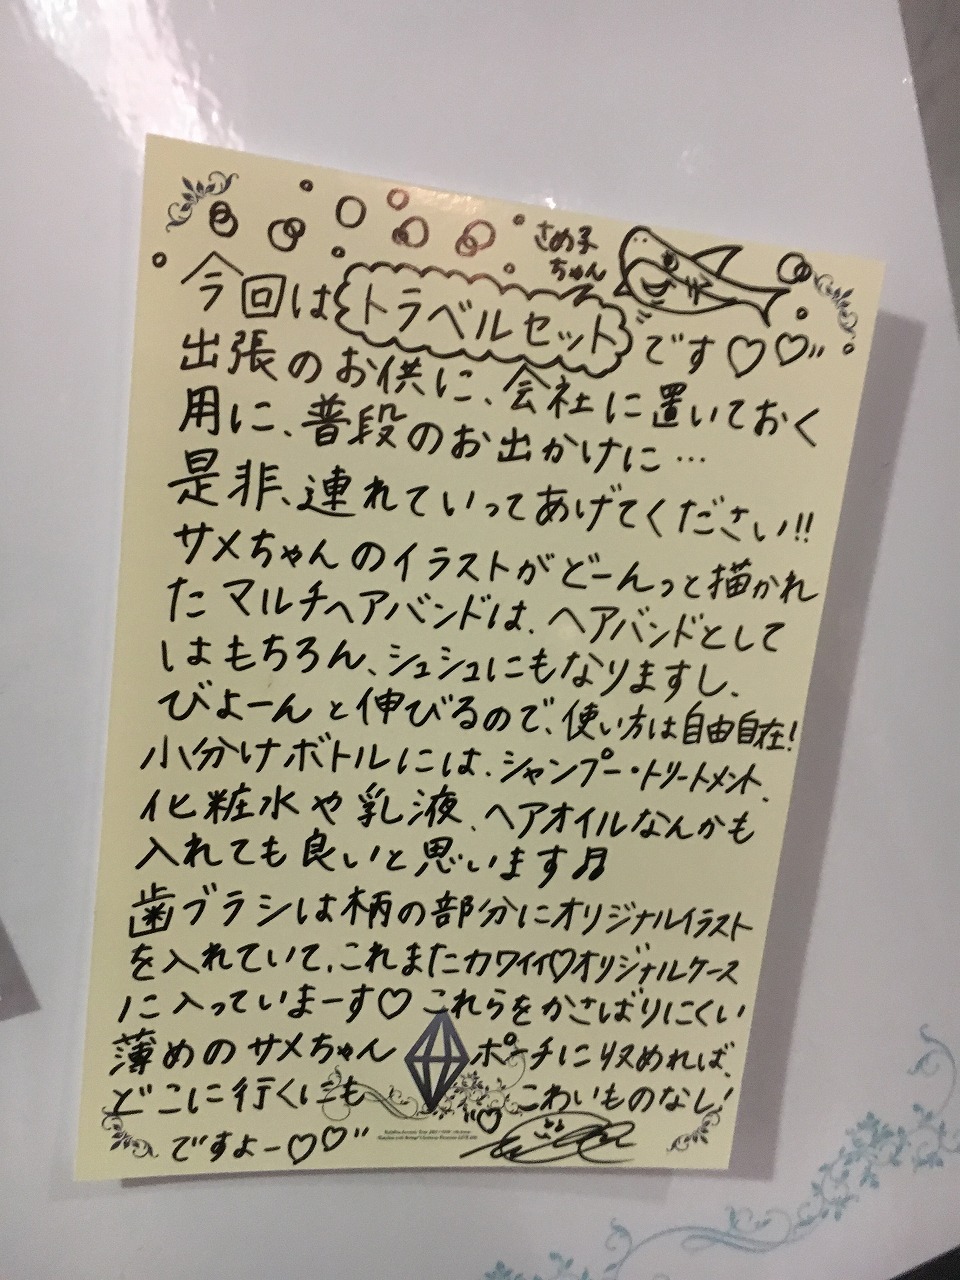 さめ子
ちゃん
今回はトラベルセットです♡♡"
出張のお供に、会社に置いておく
用に、普段のお出かけに…
是非、連れていってあげてください!!
サメちゃんのイラストがどーんっと描かれ
たマルチヘアバンドは、ヘアバンドとして
はもちろん、シュシュにもなりますし、
びよーんと伸びるので、使い方は自由自在!
小分けボトルには、シャンプー・トリートメント、
化粧水や乳液、ヘアオイルなんかも
入れても良いと思います♬
歯ブラシは柄の部分にオリジナルイラスト
を入れていて、これまたカワイイ♡オリジナルケース
に入っていまーす♡これらをかさばりにくい
薄めのサメちゃんポーチに収めれば、
どこに行くにもこわいものなし!
ですよー♡♡"